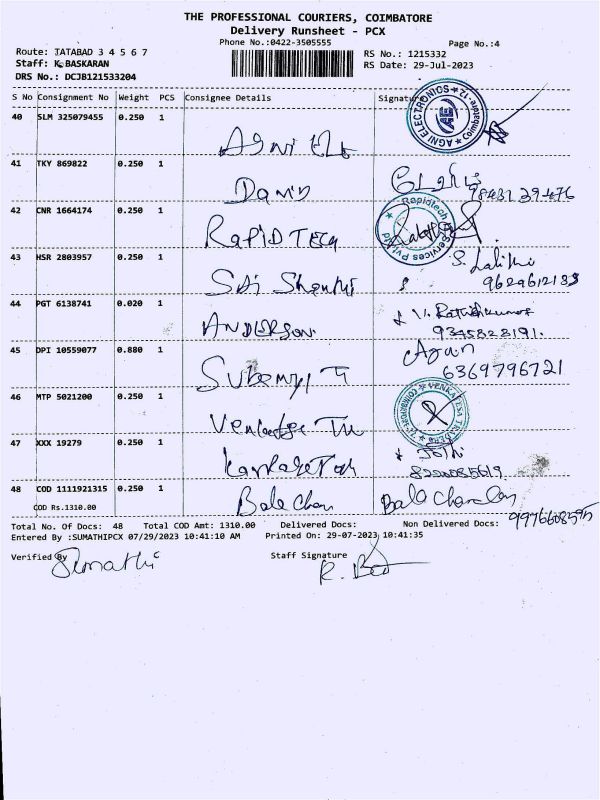 THE PROFESSIONAL COURIERS, COIMBATORE
Delivery Runsheet - PCX
Phone No.:0422-3505555
Page No.:4
Route: TATABAD 3 4 5 6 7
RS No.: 1215332
Staff: K.BASKARAN
RS Date: 29-Jul-2023
DRS No.: DCJB121533204
S No Consignment No Weight PCS Consignee Details Signature
40 SLM 325079455 0.250 1 Agni AGNI ELECTRONICS Coimbatore-12
41 TKY 869822 0.250 1
42 CNR 1664174 0.250 1 RAPID TECH Rapidtech Services Pvt Ltd
43 HSR 2803957 0.250 1 Sai Shanthi S. Lalitha
9629612183
44 PGT 6138741 0.020 1 ANDERSON V. Rathishkumar
9345828191.
45 DPI 10559077 0.880 1
6369796721
46 MTP 5021200 0.250 1 VENKATESA TRADERS COIMBATORE-12
47 XXX 19279 0.250 1 Jothi
48 COD 1111921315 0.250 1 Bala Chan Bala Chandan
COD Rs.1310.00
9976608595
Total No. Of Docs: 48 Total COD Amt: 1310.00 Delivered Docs: Non Delivered Docs:
Entered By :SUMATHIPCX 07/29/2023 10:41:10 AM Printed On: 29-07-2023 10:41:35
Verified By Sumathi Staff Signature